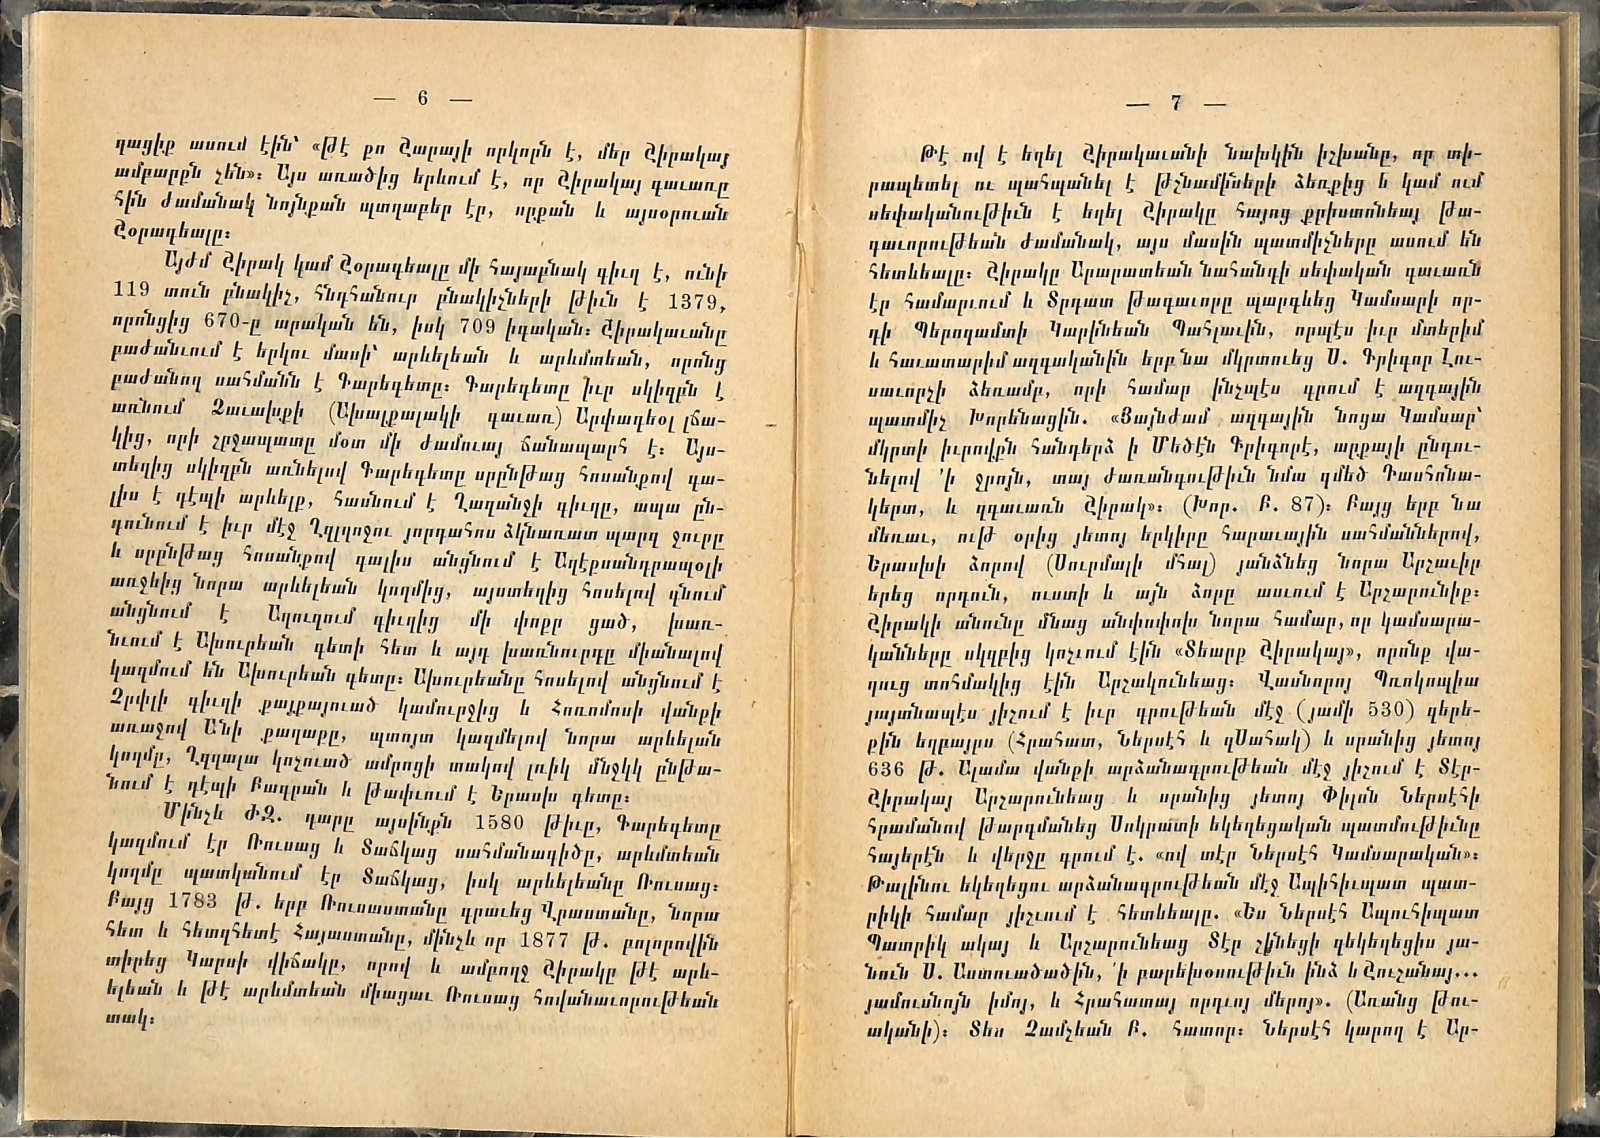 — 6 —
դացիք ասում էին՝ «թէ քո Շարայի որկորն է, մեր Շիրակայ
ամբարքն չեն»։ Այս առածից երևում է, որ Շիրակայ գաւառը
հին ժամանակ նոյնքան պտղաբեր էր, որքան և այսօրուան
Շօրագեալը։
Այժմ Շիրակ կամ Շօրագեալը մի հայաբնակ գիւղ է, ունի
119 տուն բնակիչ, հնդհանուր բնակիչների թիւն է 1379,
որոնցից 670-ը արական են, իսկ 709 իգական։ Շիրակաւանը
բաժանւում է երկու մասի՝ արևելեան և արևմտեան, որոնց
բաժանող սահմանն է Գարեգետը։ Գարեգետը իւր սկիզբն է
առնում Ջաւախքի (Ախալքալակի գաւառ) Արփագեօլ լճա-
կից, որի շրջապատը մօտ մի ժամուայ ճանապարհ է։ Այս-
տեղից սկիզբն առնելով Գարեգետը սրընթաց հոսանքով գա-
լիս է դէպի արևելք, հասնում է Ղազանչի գիւղը, ապա ըն-
դունում է իւր մէջ Ղզլղոչու յորդահոս ձկնառատ պարզ ջուրը
և սրընթաց հոսանքով գալիս անցնում է Աղէքսանդրապօլի
առջևից նորա արևելեան կողմից, այստեղից հոսելով գնում
անցնում է Ազուզում գիւղից մի փոքր ցած, խառ-
նւում է Ախուրեան գետի հետ և այդ խառնուրդը միանալով
կազմում են Ախուրեան գետը։ Ախուրեանը հոսելով անցնում է
Ջրփլի գիւղի քայքայուած կամուրջից և Հոռոմոսի վանքի
առաջով Անի քաղաքը, պտոյտ կազմելով նորա արևելան
կողմը, Ղզղալա կոչուած ամրոցի տակով լռիկ մնջկկ ընթա-
նում է դէպի Բագրան և թափւում է Երասխ գետը։
Մինչև ԺԶ. դարը այսինքն 1580 թիւը, Գարեգետը
կազմում էր Ռուսաց և Տաճկաց սահմանագիծը, արևմտեան
կողմը պատկանում էր Տաճկաց, իսկ արևելեանը Ռուսաց։
Բայց 1783 թ. երբ Ռուսաստանը գրաւեց Վրաստանը, նորա
հետ և հետզհետէ Հայաստանը, մինչև որ 1877 թ. բոլորովին
տիրեց Կարսի վիճակը, որով և ամբողջ Շիրակը թէ արև-
ելեան և թէ արևմտեան միացաւ Ռուսաց հովանաւորութեան
տակ։
— 7 —
Թէ ով է եղել Շիրակաւանի նախկին իշխանը, որ տի-
րապետել ու պահպանել է թշնամիների ձեռքից և կամ ում
սեփականութիւն է եղել Շիրակը հայոց քրիստոնեայ թա-
գաւորութեան ժամանակ, այս մասին պատմիչները ասում են
հետևեալը։ Շիրակը Արարատեան նահանգի սեփական գաւառն
էր համարւում և Տրդատ թագաւորը պարգևեց Կամսարի որ-
դի Պերոզամատի Կարինեան Պահլաւին, որպէս իւր մտերիմ
և հաւատարիմ ազգականին երբ նա մկրտուեց Ս. Գրիգոր Լու-
սաւորչի ձեռամբ, որի համար ինչպէս գրում է ազգային
պատմիչ Խորենացին. «Յայնժամ ազգային նոցա Կամսար՝
մկրտի իւրովքն հանդերձ ի Մեծէն Գրիգորէ, արքայի ընդու-
նելով ՚ի ջրոյն, տայ ժառանգութիւն նմա զմեծ Դաստնա-
կերտ, և զգաւառն Շիրակ»։ (Խոր. Բ. 87)։ Բայց երբ նա
մեռաւ, ութ օրից յետոյ երկիրը հարաւային սահմաններով,
Երասխի ձորով (Սուրմալի մհալ) յանձնեց նորա Արշաւիր
երեց որդուն, ուստի և այն ձորը ասւում է Արշարունիք։
Շիրակի անունը մնաց անփոփոխ նորա համար, որ կամսարա-
կանները սկզբից կոչւում էին «Տեարք Շիրակայ», որոնք վա-
ղուց տոհմակից էին Արշակունեաց։ Վասնորոյ Պռոկոպիա
յայտնապէս յիշում է իւր գրութեան մէջ (յամի 530) զերե-
քին եղբայրս (Հրահատ, Ներսէհ և զՍահակ) և սրանից յետոյ
636 թ. Ալամա վանքի արձանագրութեան մէջ յիշում է Տէր-
Շիրակայ Արշարունեաց և սրանից յետոյ Փիլոն Ներսէհի
հրամանով թարգմանեց Սոկրատի եկեղեցական պատմութիւնը
հայերէն և վերջը գրում է. «ով տէր Ներսէհ Կամսարական»։
Թալինու եկեղեցու արձանագրութեան մէջ Ապիհիւպատ պատ-
րիկի համար յիշւում է հետևեալը. «Ես Ներսէհ Ապուհիպատ
Պատրիկ ակայ և Արշարունեաց Տէր շինեցի զեկեղեցիս յա-
նուն Ս. Աստուածածին, ՚ի բարեխօսութիւն ինձ և Շուշանայ...
յամուսնոյն իմոյ, և Հրահատայ որդւոյ մերոյ». (Առանց թու-
ականի)։ Տես Չամչեան Բ. հատոր։ Ներսէհ կարող է Ար-